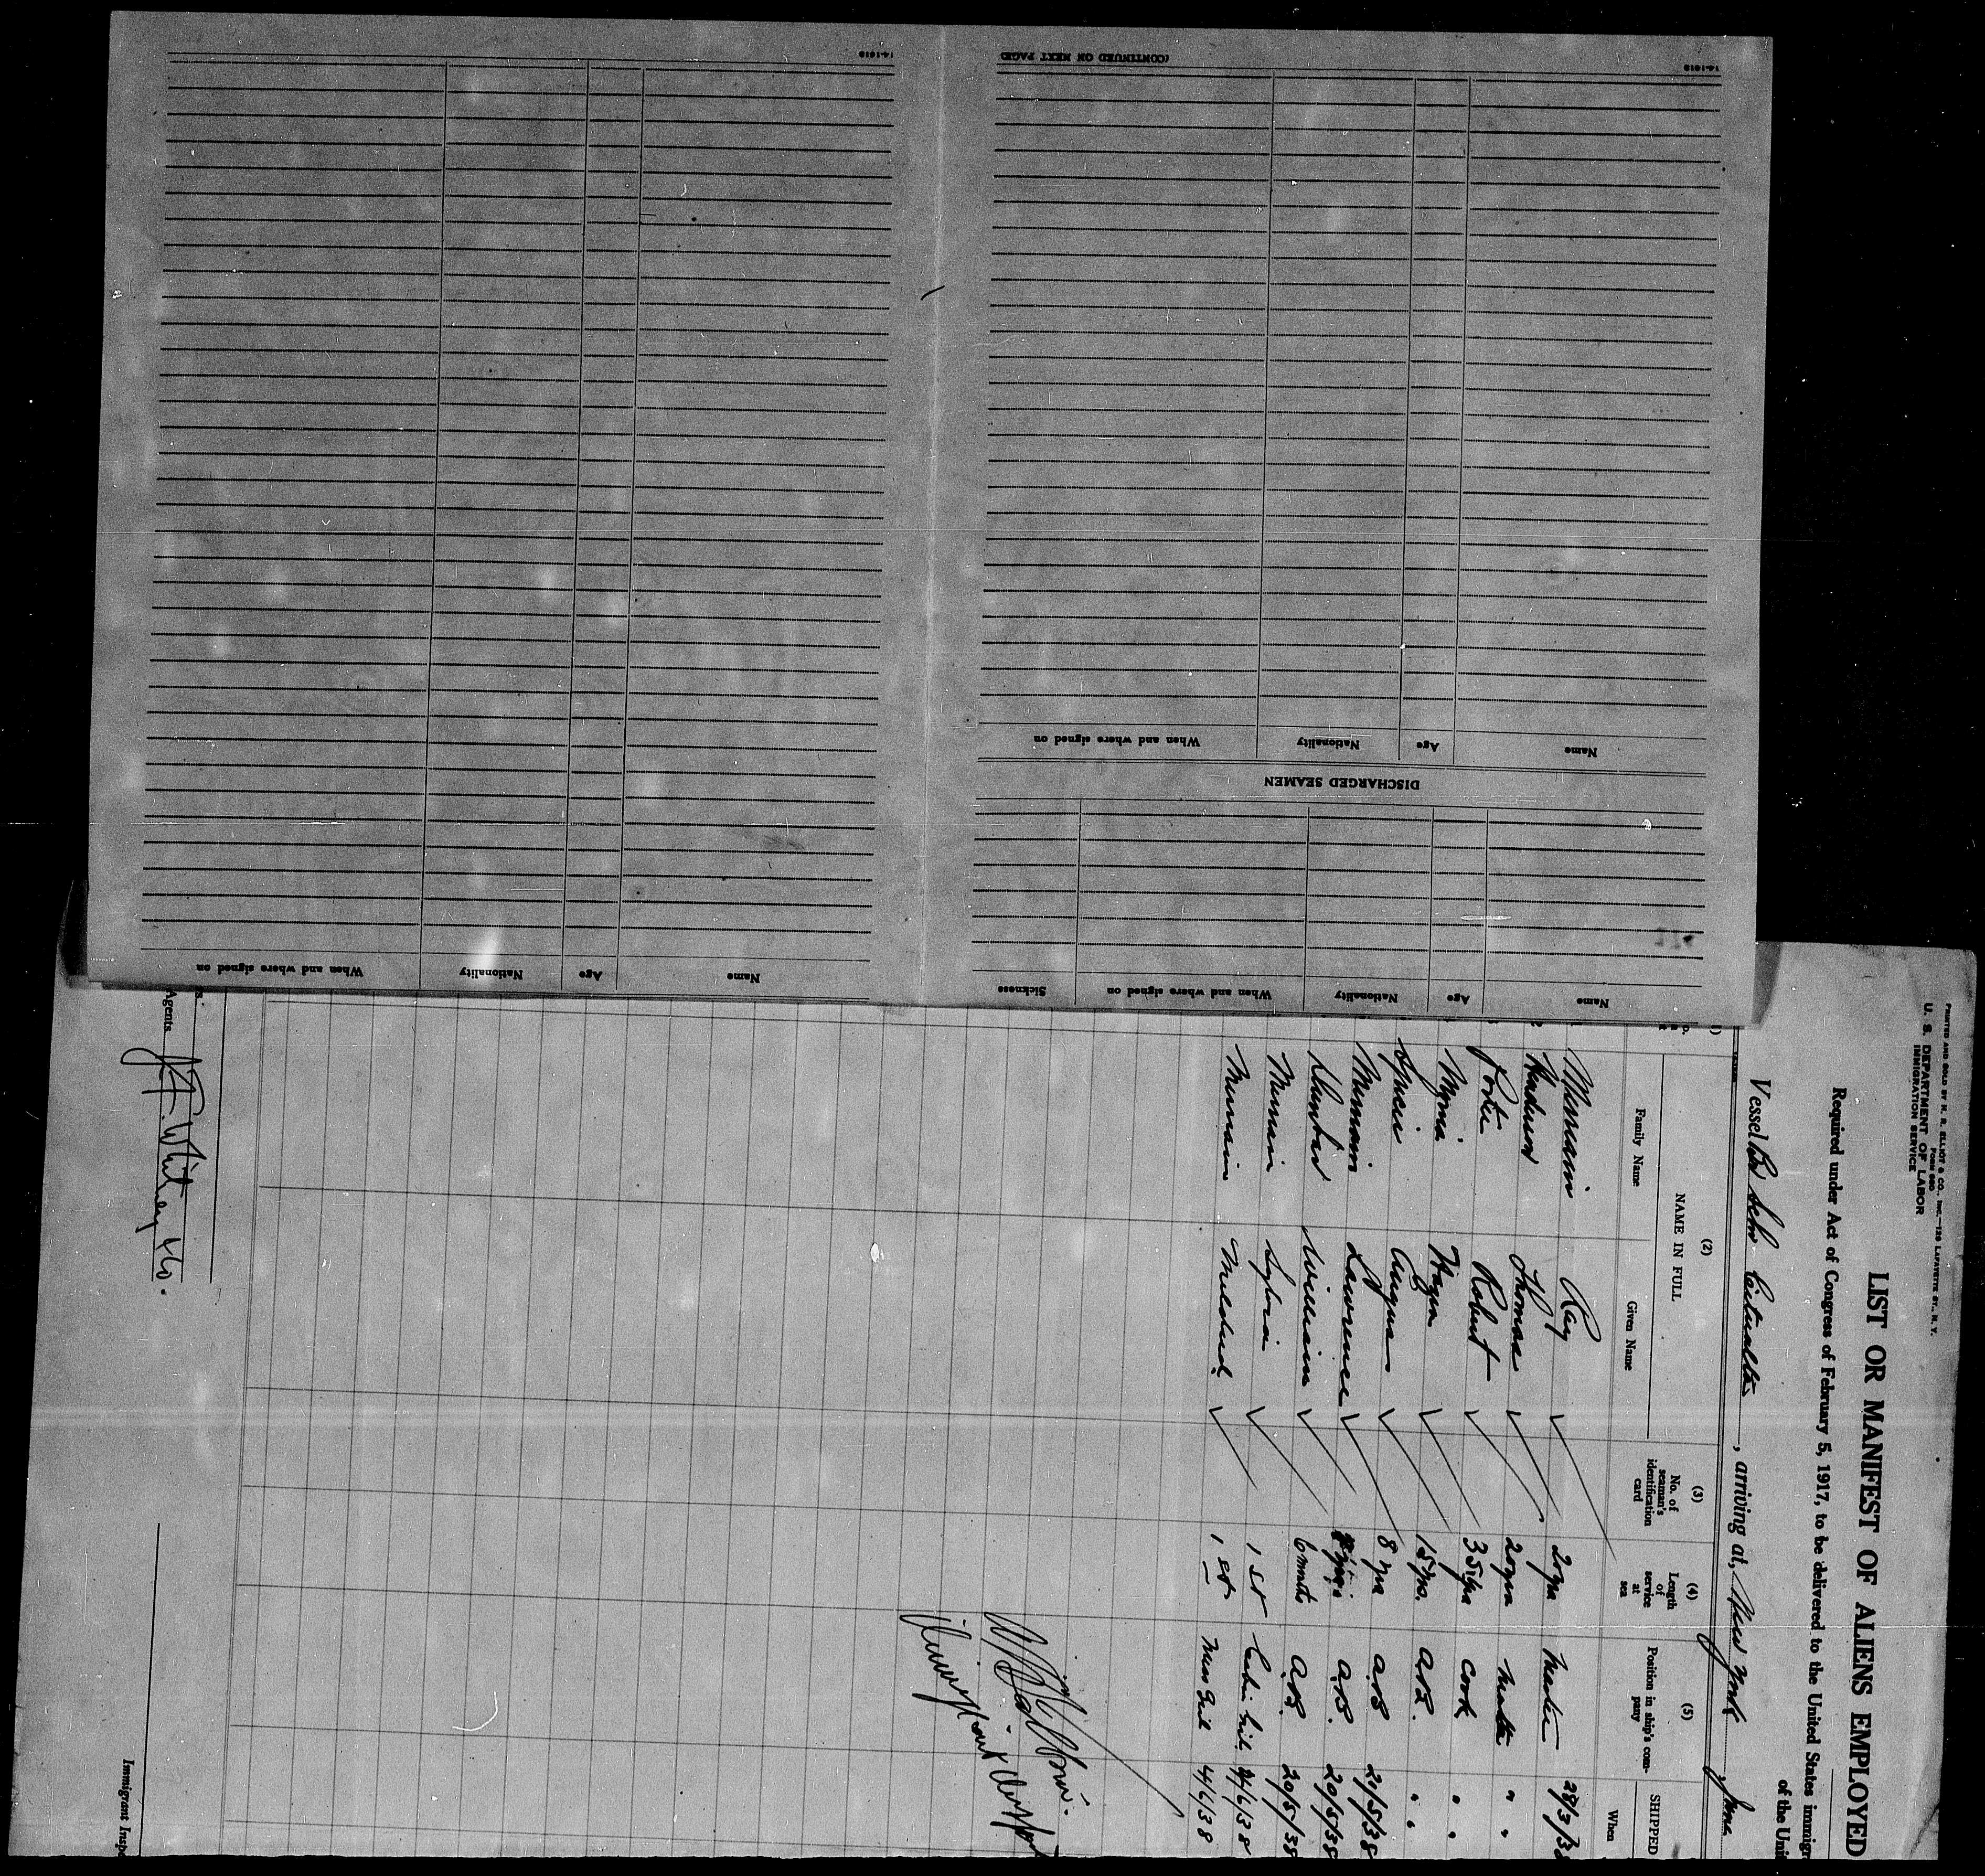 14-1618
(CONTINUED ON NEXT PAGE)
14-1618
Name
Age
Nationality
When and where signed on
DISCHARGED SEAMEN
Name
Age
Nationality
When and where signed on
Sickness
Name
Age
Nationality
When and where signed on
PRINTED AND SOLD BY H. R. ELLIOT & CO., INC.—129 LAFAYETTE ST., N. Y.
FORM 680
U. S. DEPARTMENT OF LABOR
IMMIGRATION SERVICE
LIST OR MANIFEST OF ALIENS EMPLOYED
Required under Act of Congress of February 5, 1917, to be delivered to the United States immigr
of the Unit
Vessel Br Schr , arriving at, New York June
(2) (3) (4) (5)
NAME IN FULL
Family Name Given Name
No. of seaman's identification card
Length of service at sea
Position in ship's company
SHIPPED
When
Merriam Ray 20 yrs Master 28/3/38
Thomas 20 yrs Mate " "
Porter Robert 35 yrs Cook " "
Wayne 15 yrs. A.B. " "
Angus 8 yrs A.B. 21/5/38
Merriam Lawrence A.B. 20/5/38
William 6 mnts A.B. 20/5/38
Merriam Sylvia 1 st 4/6/38
Merriam Mildred 1 st 4/6/38
Agents J.F. Whitney & Co.
Immigrant Inspe